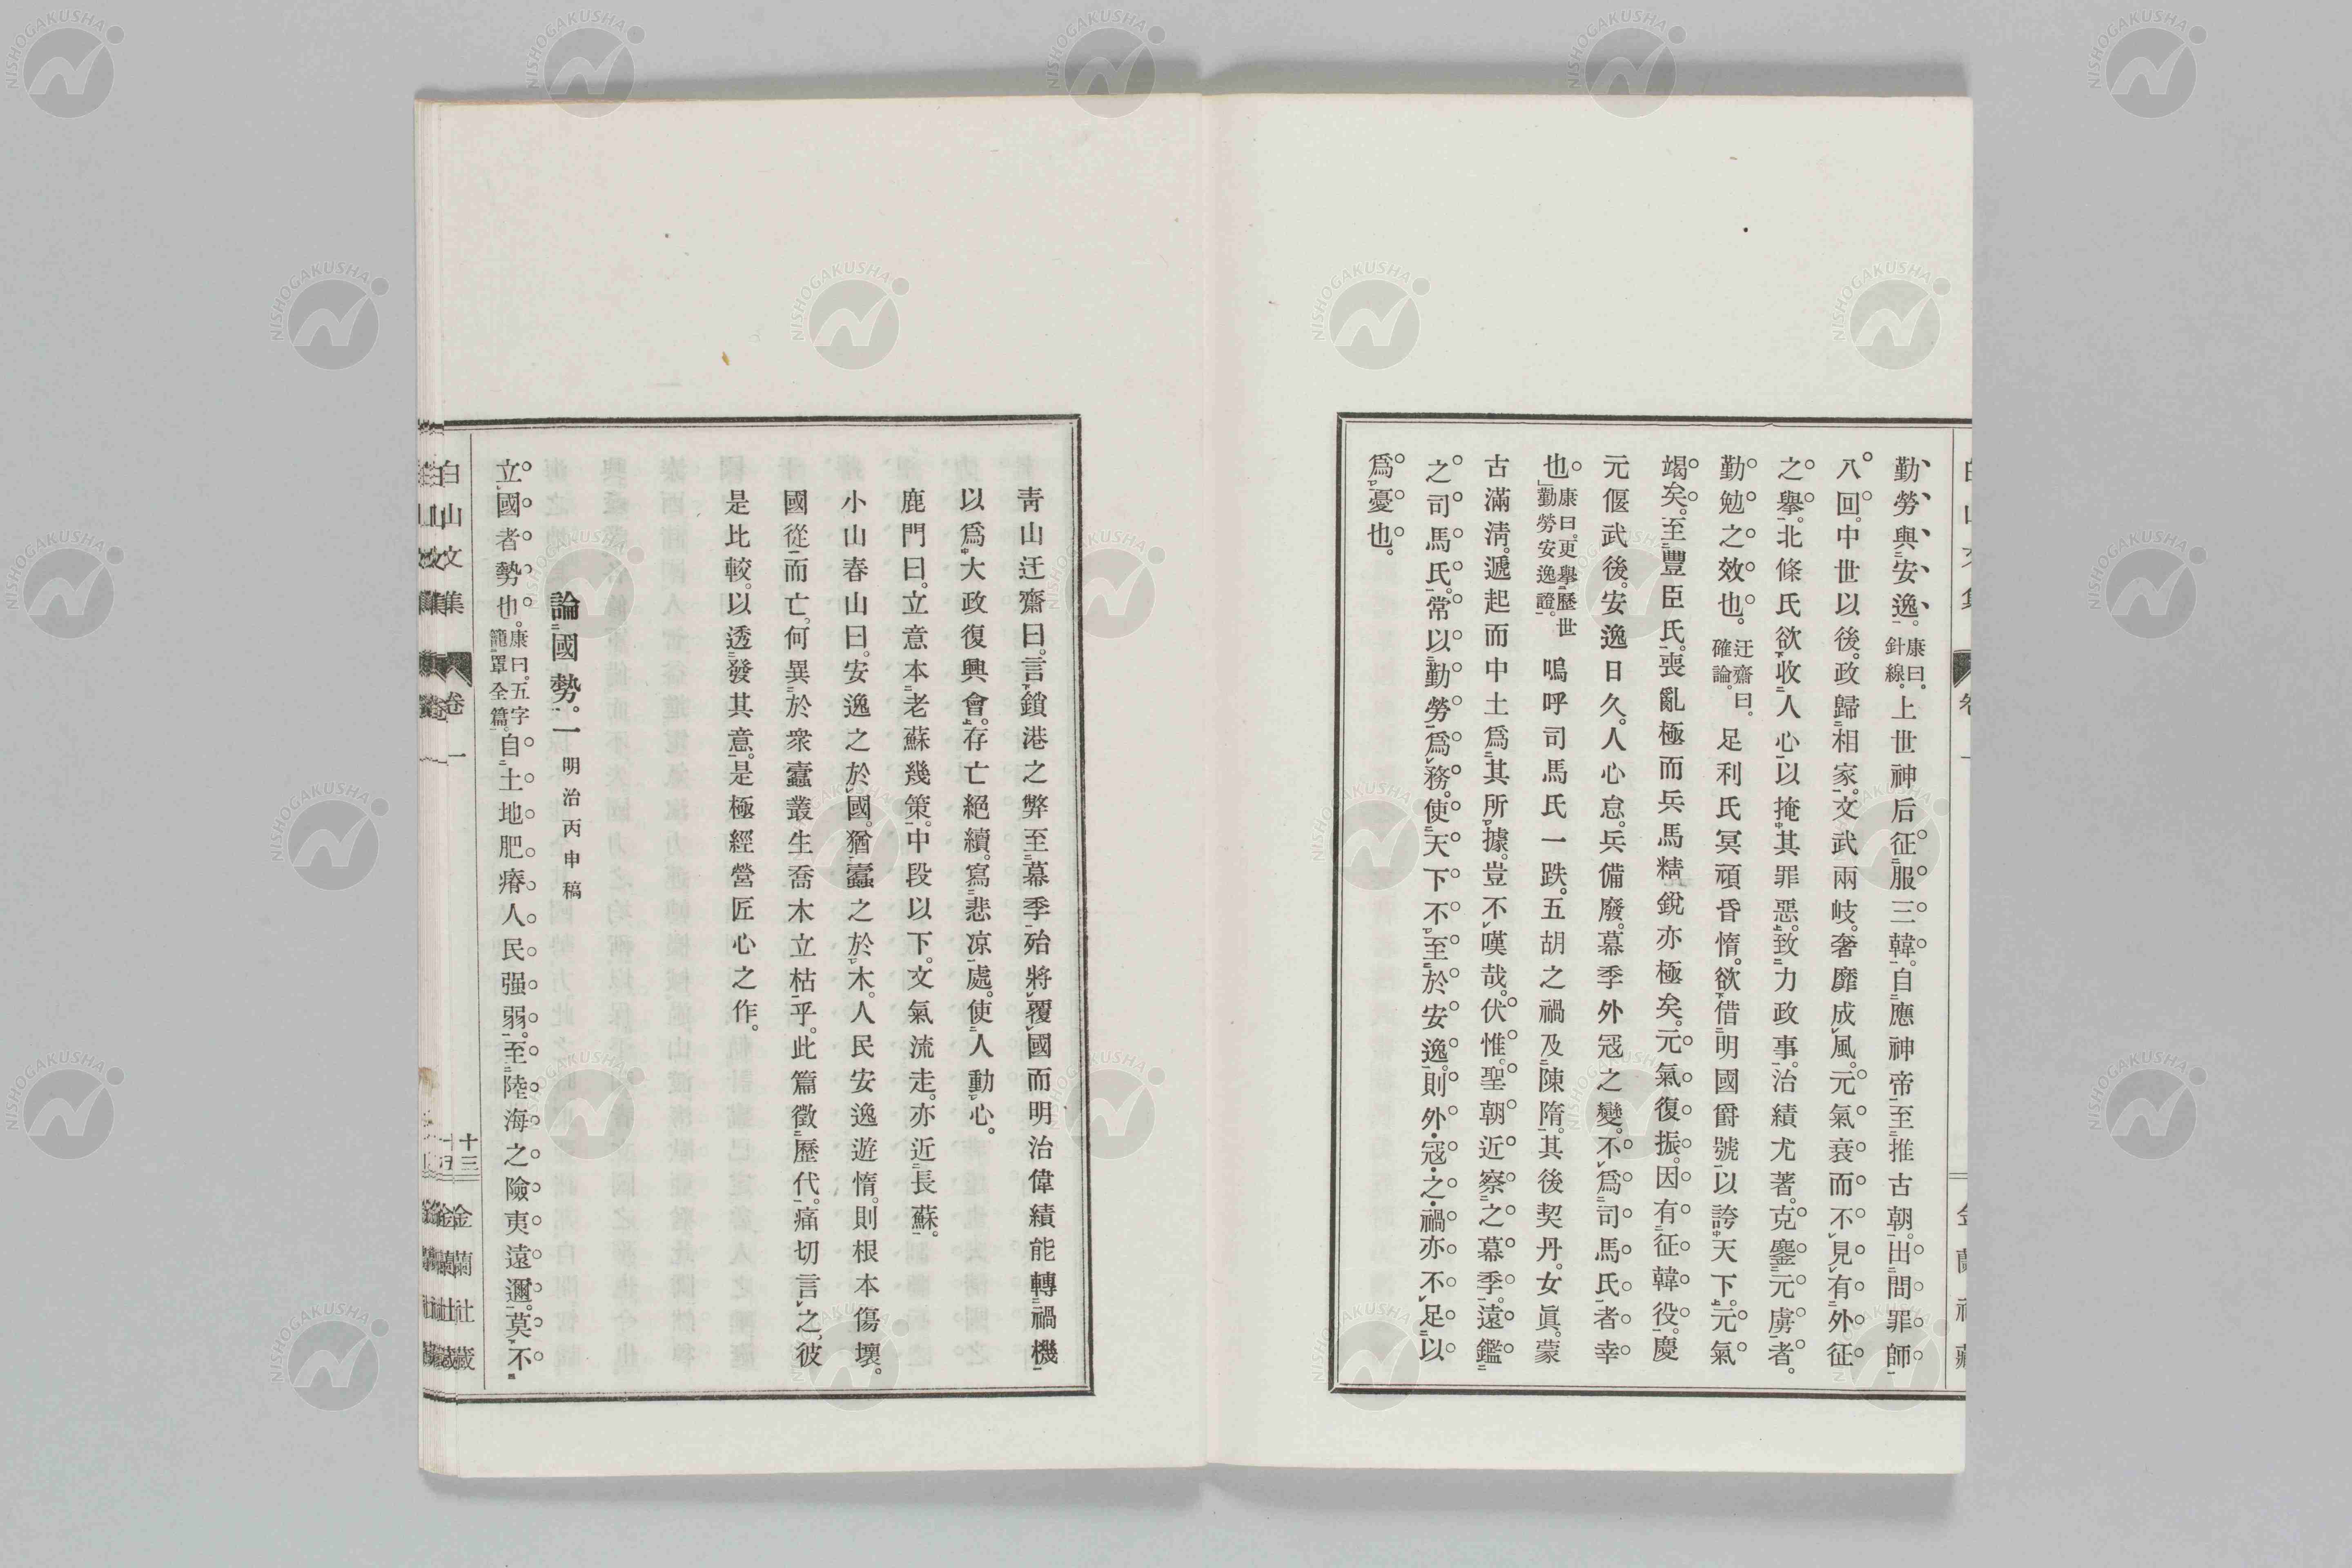 勤勞與安逸。康曰。針線。上世神后征服三韓。自應神帝至推古朝。出問罪師
八回。中世以後。政歸相家。文武兩岐。奢靡成風。元氣衰而不見有外征
之擧。北條氏欲收人心以掩其罪惡。致力政事。治績尤著。克鏖元虜者。
勤勉之效也。迂齋曰。確論。足利氏冥頑昏惰。欲借明國爵號以誇天下。元氣
竭矣。至豐臣氏。喪亂極而兵馬精銳亦極矣。元氣復振。因有征韓役。慶
元偃武後。安逸日久。人心怠。兵備廢。幕季外冦之變。不爲司馬氏者幸
也。康曰。更擧歷世勤勞安逸證。嗚呼司馬氏一跌。五胡之禍及陳隋。其後契丹。女眞。蒙
古滿淸。遞起而中土爲其所據。豈不嘆哉。伏惟。聖朝近察之幕季。遠鑑
之司馬氏。常以勤勞爲務。使天下不至於安逸。則外寇之禍亦不足以
爲憂也。
靑山迂齋曰。言鎖港之弊至幕季殆將覆國而明治偉績能轉禍機
以爲大政復興會。存亡絕續。寫悲凉處。使人動心。
鹿門曰。立意本老蘇幾策。中段以下。文氣流走。亦近長蘇。
小山春山曰。安逸之於國。猶蠹之於木。人民安逸遊惰。則根本傷壞。
國從而亡。何異於衆蠹叢生喬木立枯乎。此篇徵歷代。痛切言之。彼
是比較。以透發其意。是極經營匠心之作。
論國勢。一 明治丙申稿
立國者勢也。康曰。五字籠罩全篇。自土地肥瘠人民强弱。至陸海之險夷遠邇。莫不
白山文集 卷一 十三 金蘭社藏